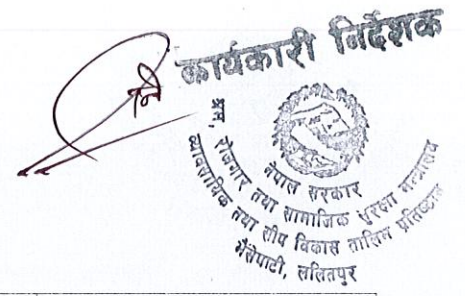 कार्यकारी निर्देशक
नेपाल सरकार
श्रम, रोजगार तथा सामाजिक सुरक्षा मन्त्रालय
व्यावसायिक तथा सीप विकास तालिम प्रतिष्ठान
भैंसेपाटी, ललितपुर